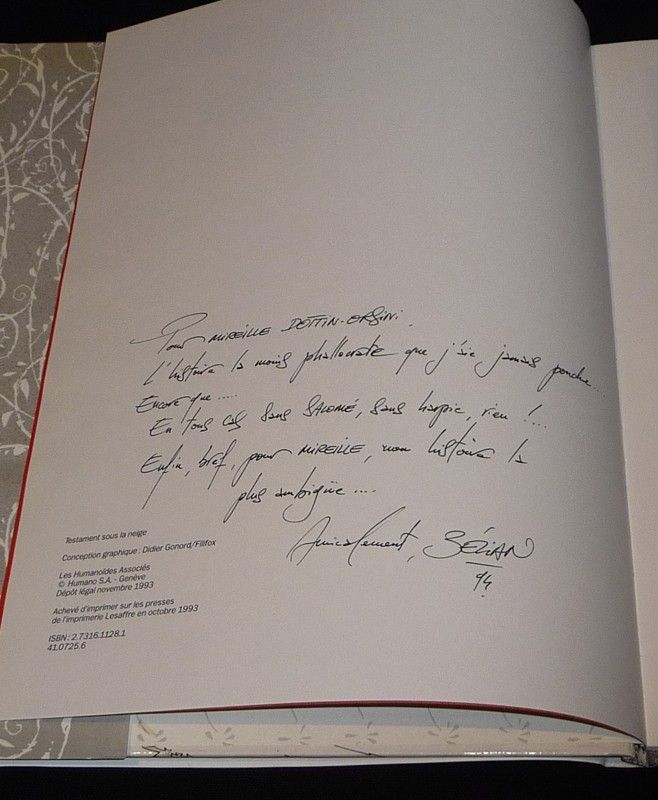 Pour MIREILLE DOTTIN-ORSINI.
L'histoire la moins phallocrate que j'aie jamais pondue...
Encore que.....
En tous cas sans SALOMÉ, sans harpie, rien !...
Enfin, bref, pour MIREILLE, mon histoire la
plus ambigüe ....
Amicalement, SÉLIAN
94
Testament sous la neige
Conception graphique : Didier Gonord/Filifox
Les Humanoïdes Associés
© Humano S.A. - Genève
Dépôt légal novembre 1993
Achevé d'imprimer sur les presses
de l'imprimerie Lesaffre en octobre 1993
ISBN : 2.7316.1128.1
41.0725.6